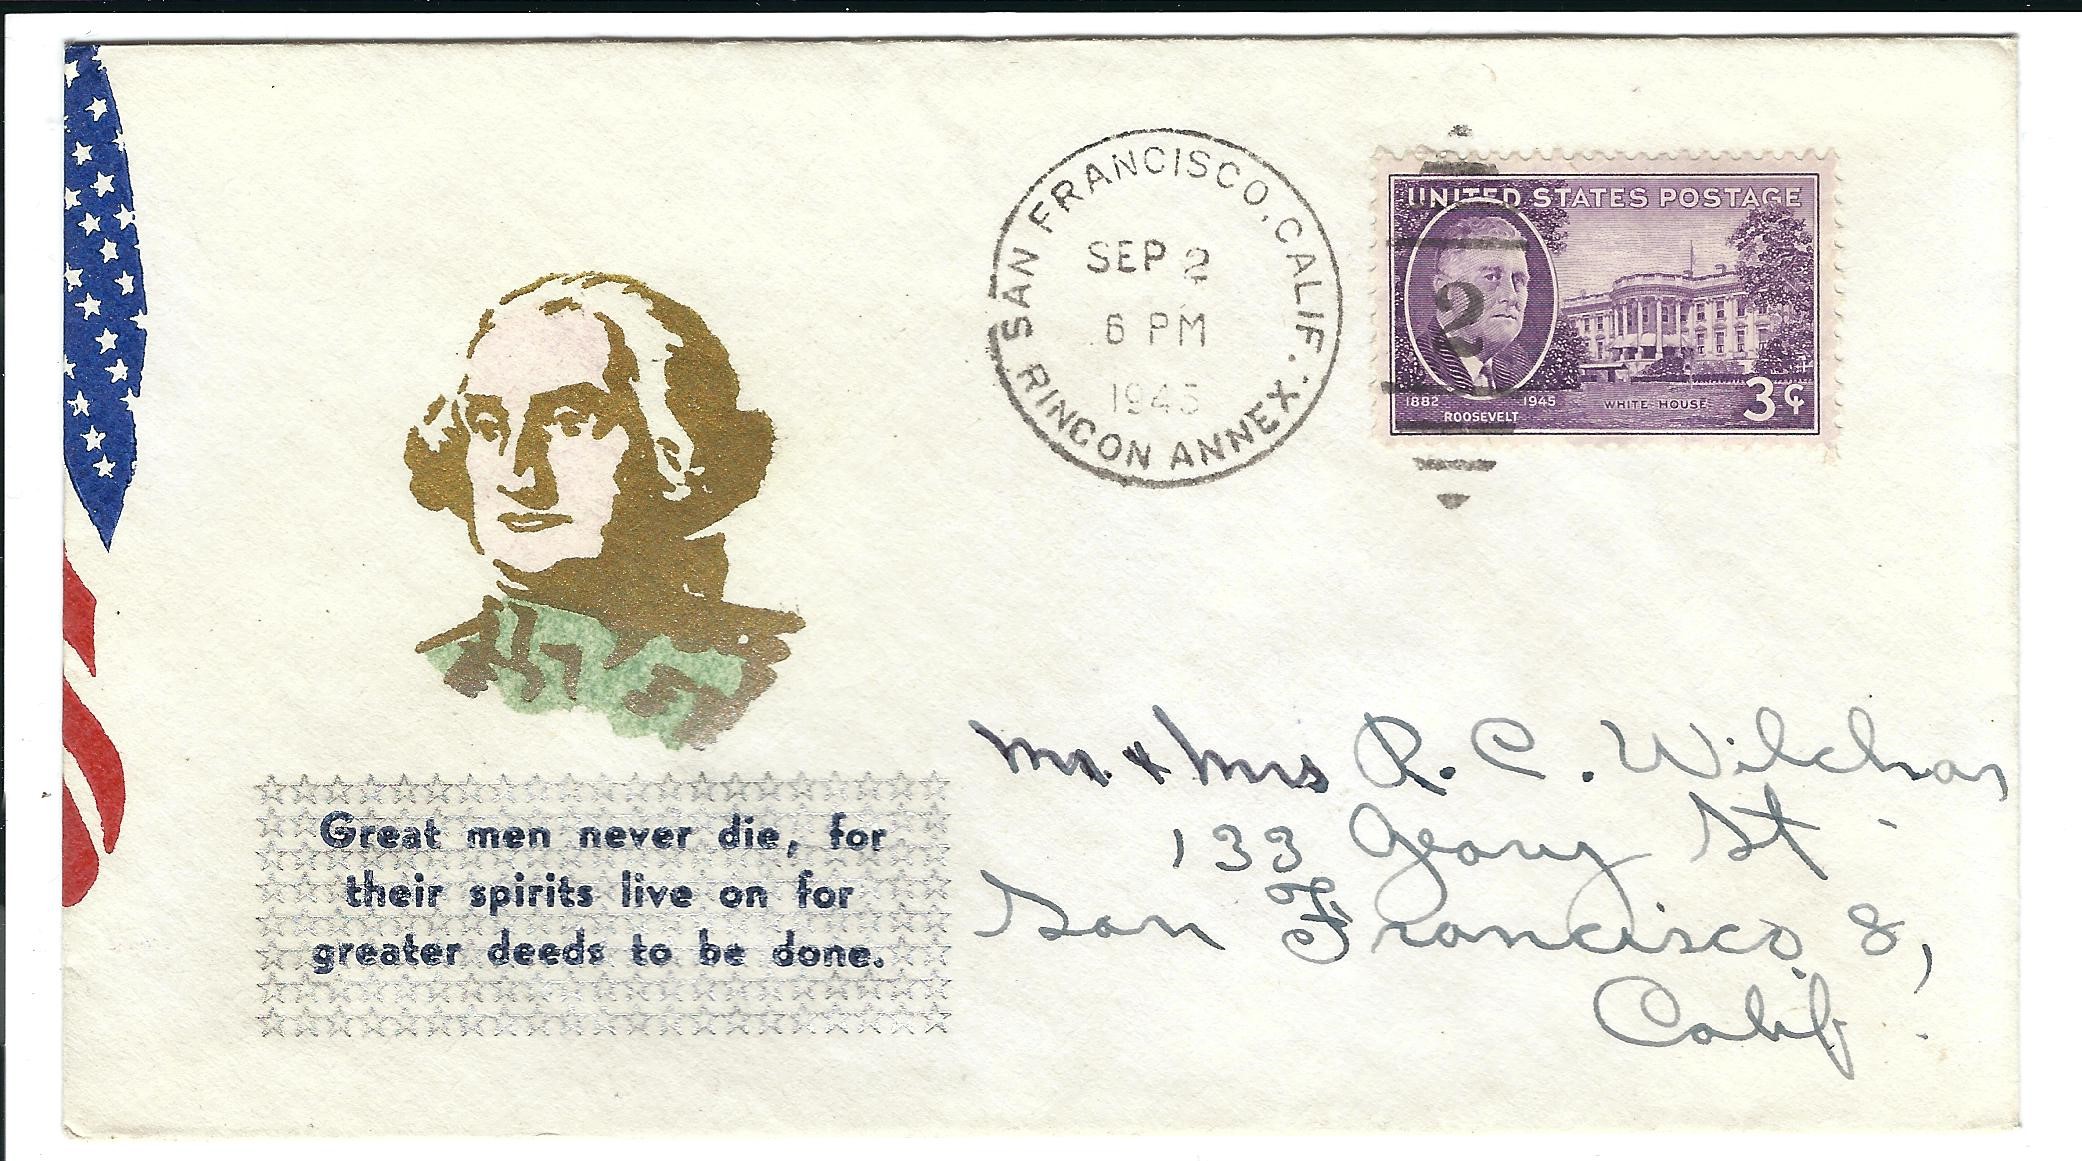 SAN FRANCISCO, CALIF.
SEP 2
6 PM
1945
RINCON ANNEX.
UNITED STATES POSTAGE
2
1882
1945
ROOSEVELT
WHITE HOUSE
3¢
Great men never die, for
their spirits live on for
greater deeds to be done.
Mr. & Mrs R. C. Wilchar
133 Geary St.
San Francisco 8,
Calif.